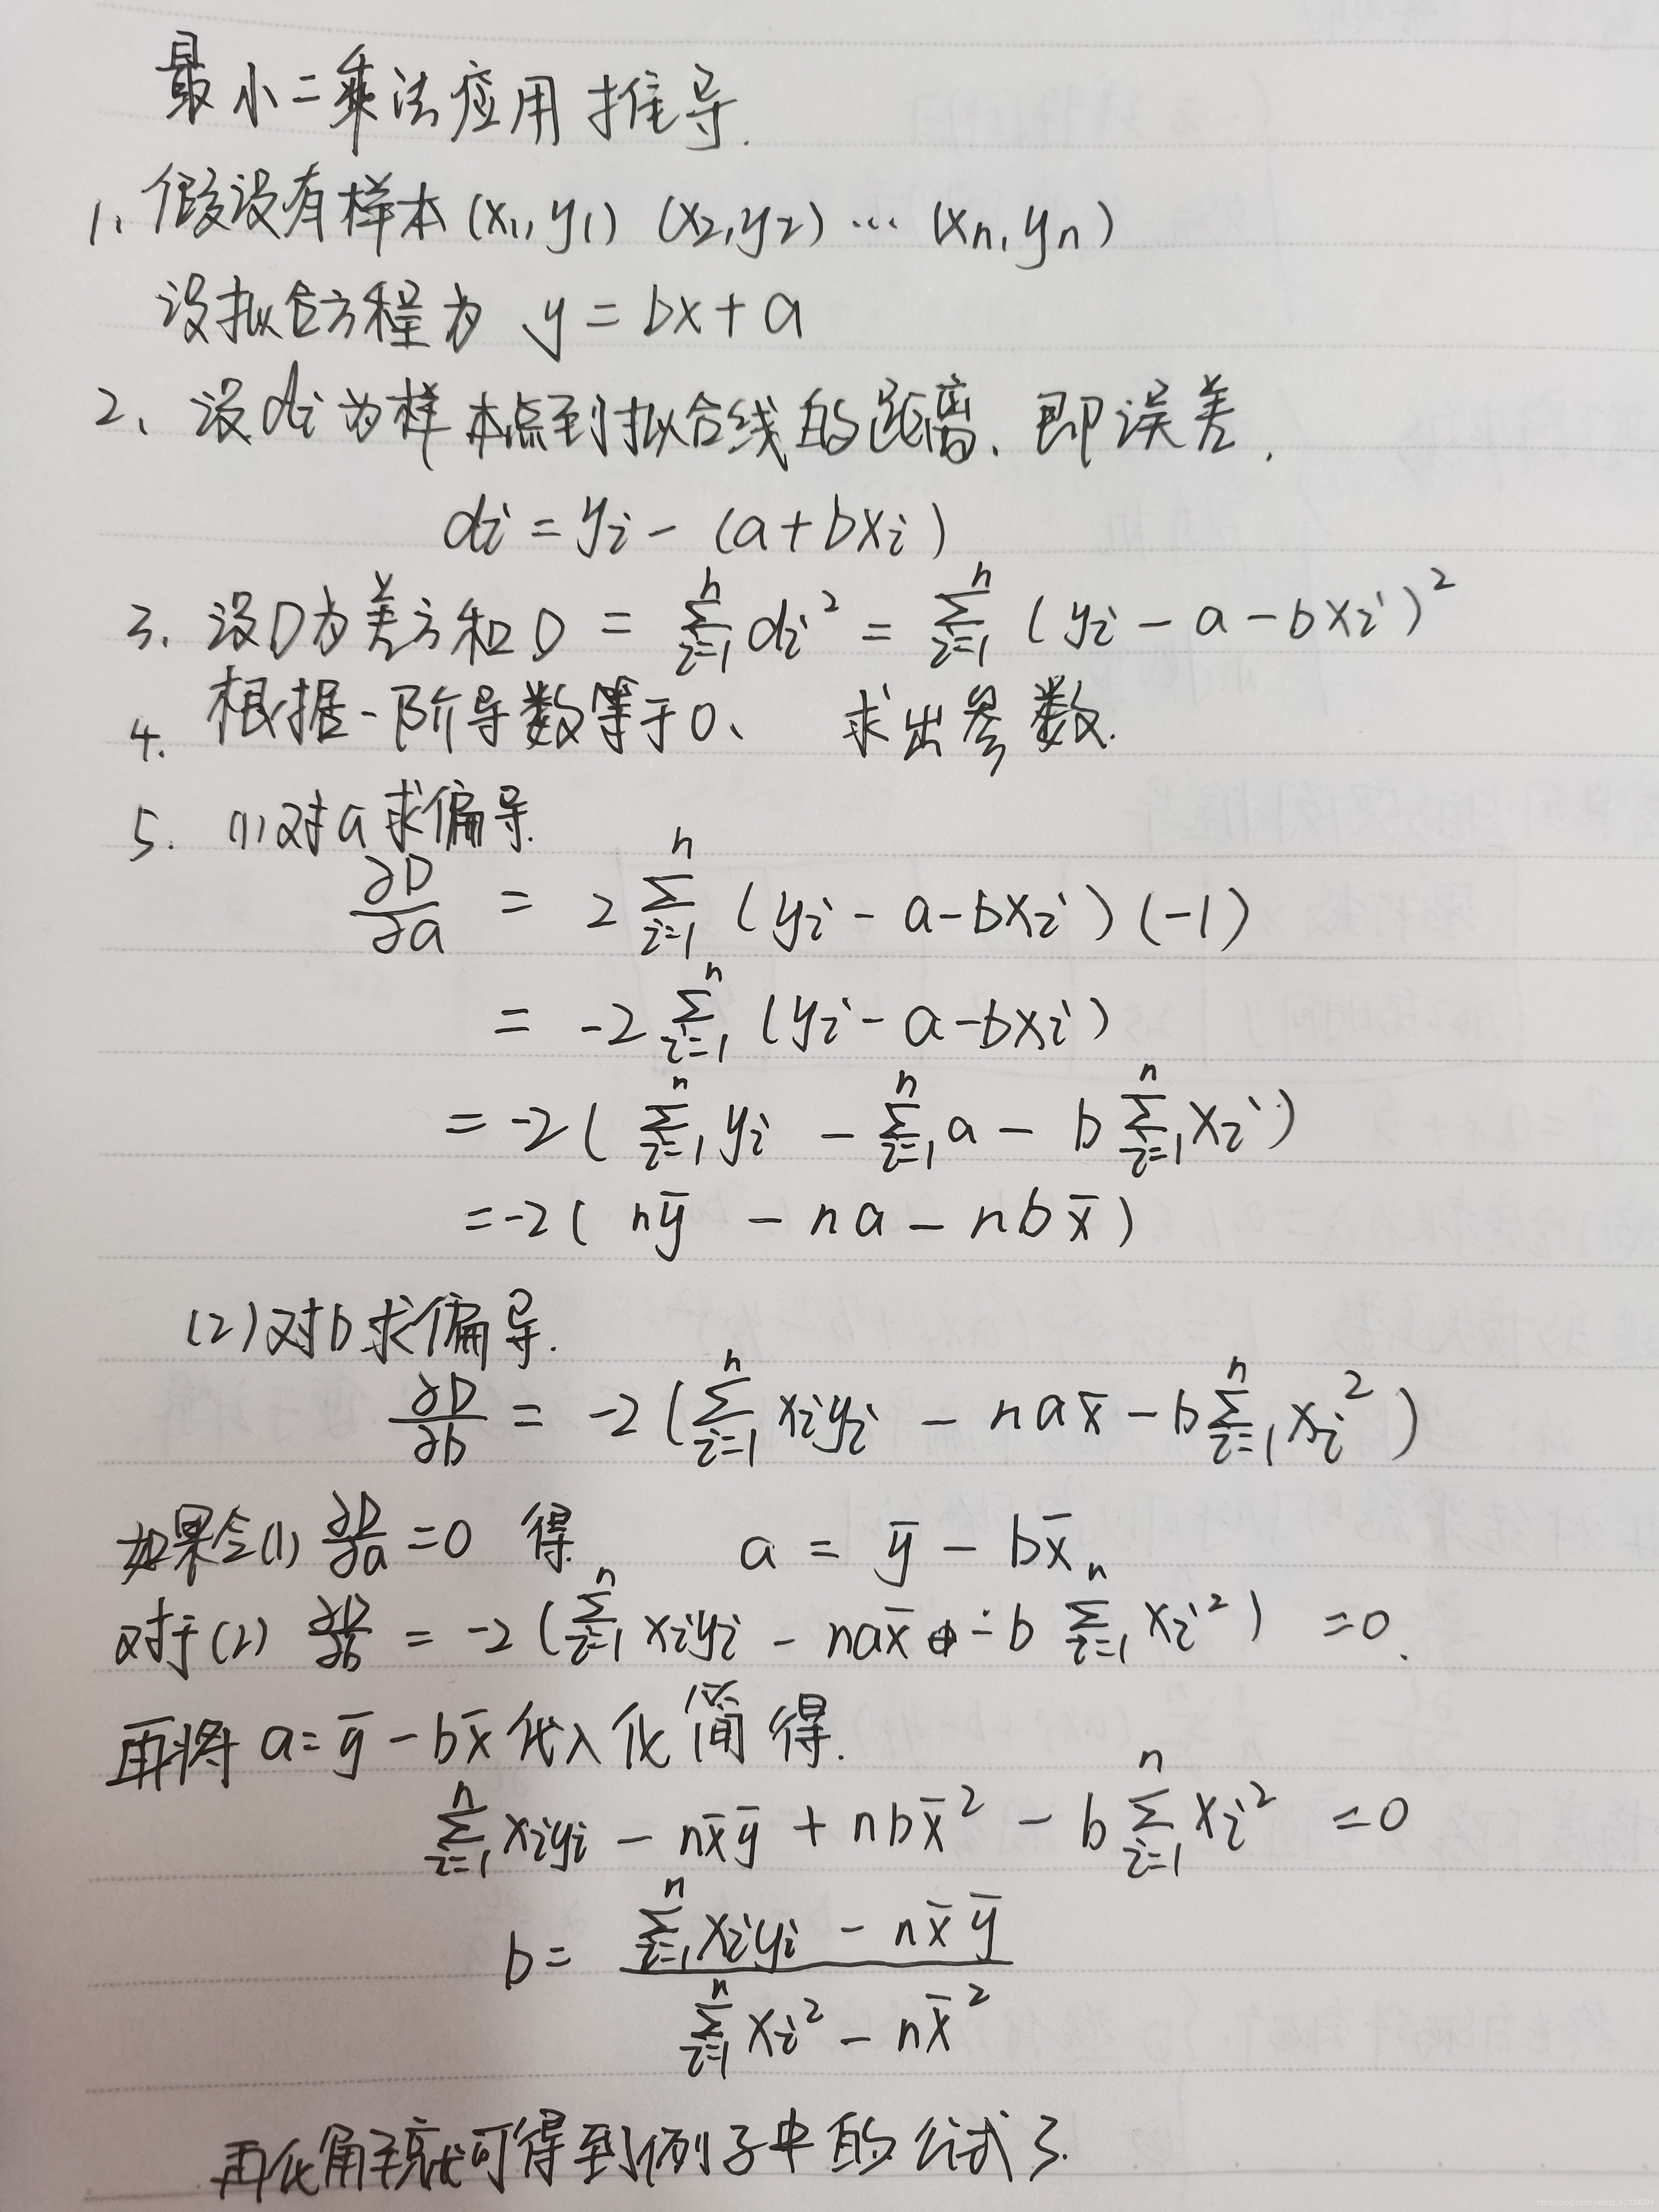 最小二乘法应用推导.
1、假设有样本 (x₁, y₁) (x₂, y₂) … (xₙ, yₙ)
设拟合方程为 y = bx + a
2、设 dᵢ 为样本点到拟合线的距离、即误差,
dᵢ = yᵢ - (a + bxᵢ)
3. 设D为差方和 D = ∑ⁿᵢ₌₁ dᵢ² = ∑ⁿᵢ₌₁ (yᵢ - a - bxᵢ)²
4. 根据一阶导数等于0、 求出参数.
5. (1)对a求偏导.
∂D/∂a = 2 ∑ⁿᵢ₌₁ (yᵢ - a - bxᵢ) (-1)
= -2 ∑ⁿᵢ₌₁ (yᵢ - a - bxᵢ)
= -2 ( ∑ⁿᵢ₌₁ yᵢ - ∑ⁿᵢ₌₁ a - b ∑ⁿᵢ₌₁ xᵢ )
= -2 ( nȳ - na - nbx̄ )
(2)对b求偏导.
∂D/∂b = -2 ( ∑ⁿᵢ₌₁ xᵢyᵢ - nax̄ - b ∑ⁿᵢ₌₁ xᵢ² )
如果令(1) ∂D/∂a = 0 得 a = ȳ - bx̄
对于(2) ∂D/∂b = -2 ( ∑ⁿᵢ₌₁ xᵢyᵢ - nax̄ - b ∑ⁿᵢ₌₁ xᵢ² ) = 0.
再将 a = ȳ - bx̄ 代入化简得.
∑ⁿᵢ₌₁ xᵢyᵢ - nx̄ȳ + nbx̄² - b ∑ⁿᵢ₌₁ xᵢ² = 0
b = (∑ⁿᵢ₌₁ xᵢyᵢ - nx̄ȳ) / (∑ⁿᵢ₌₁ xᵢ² - nx̄²)
再化解就可得到例子中的公式了.